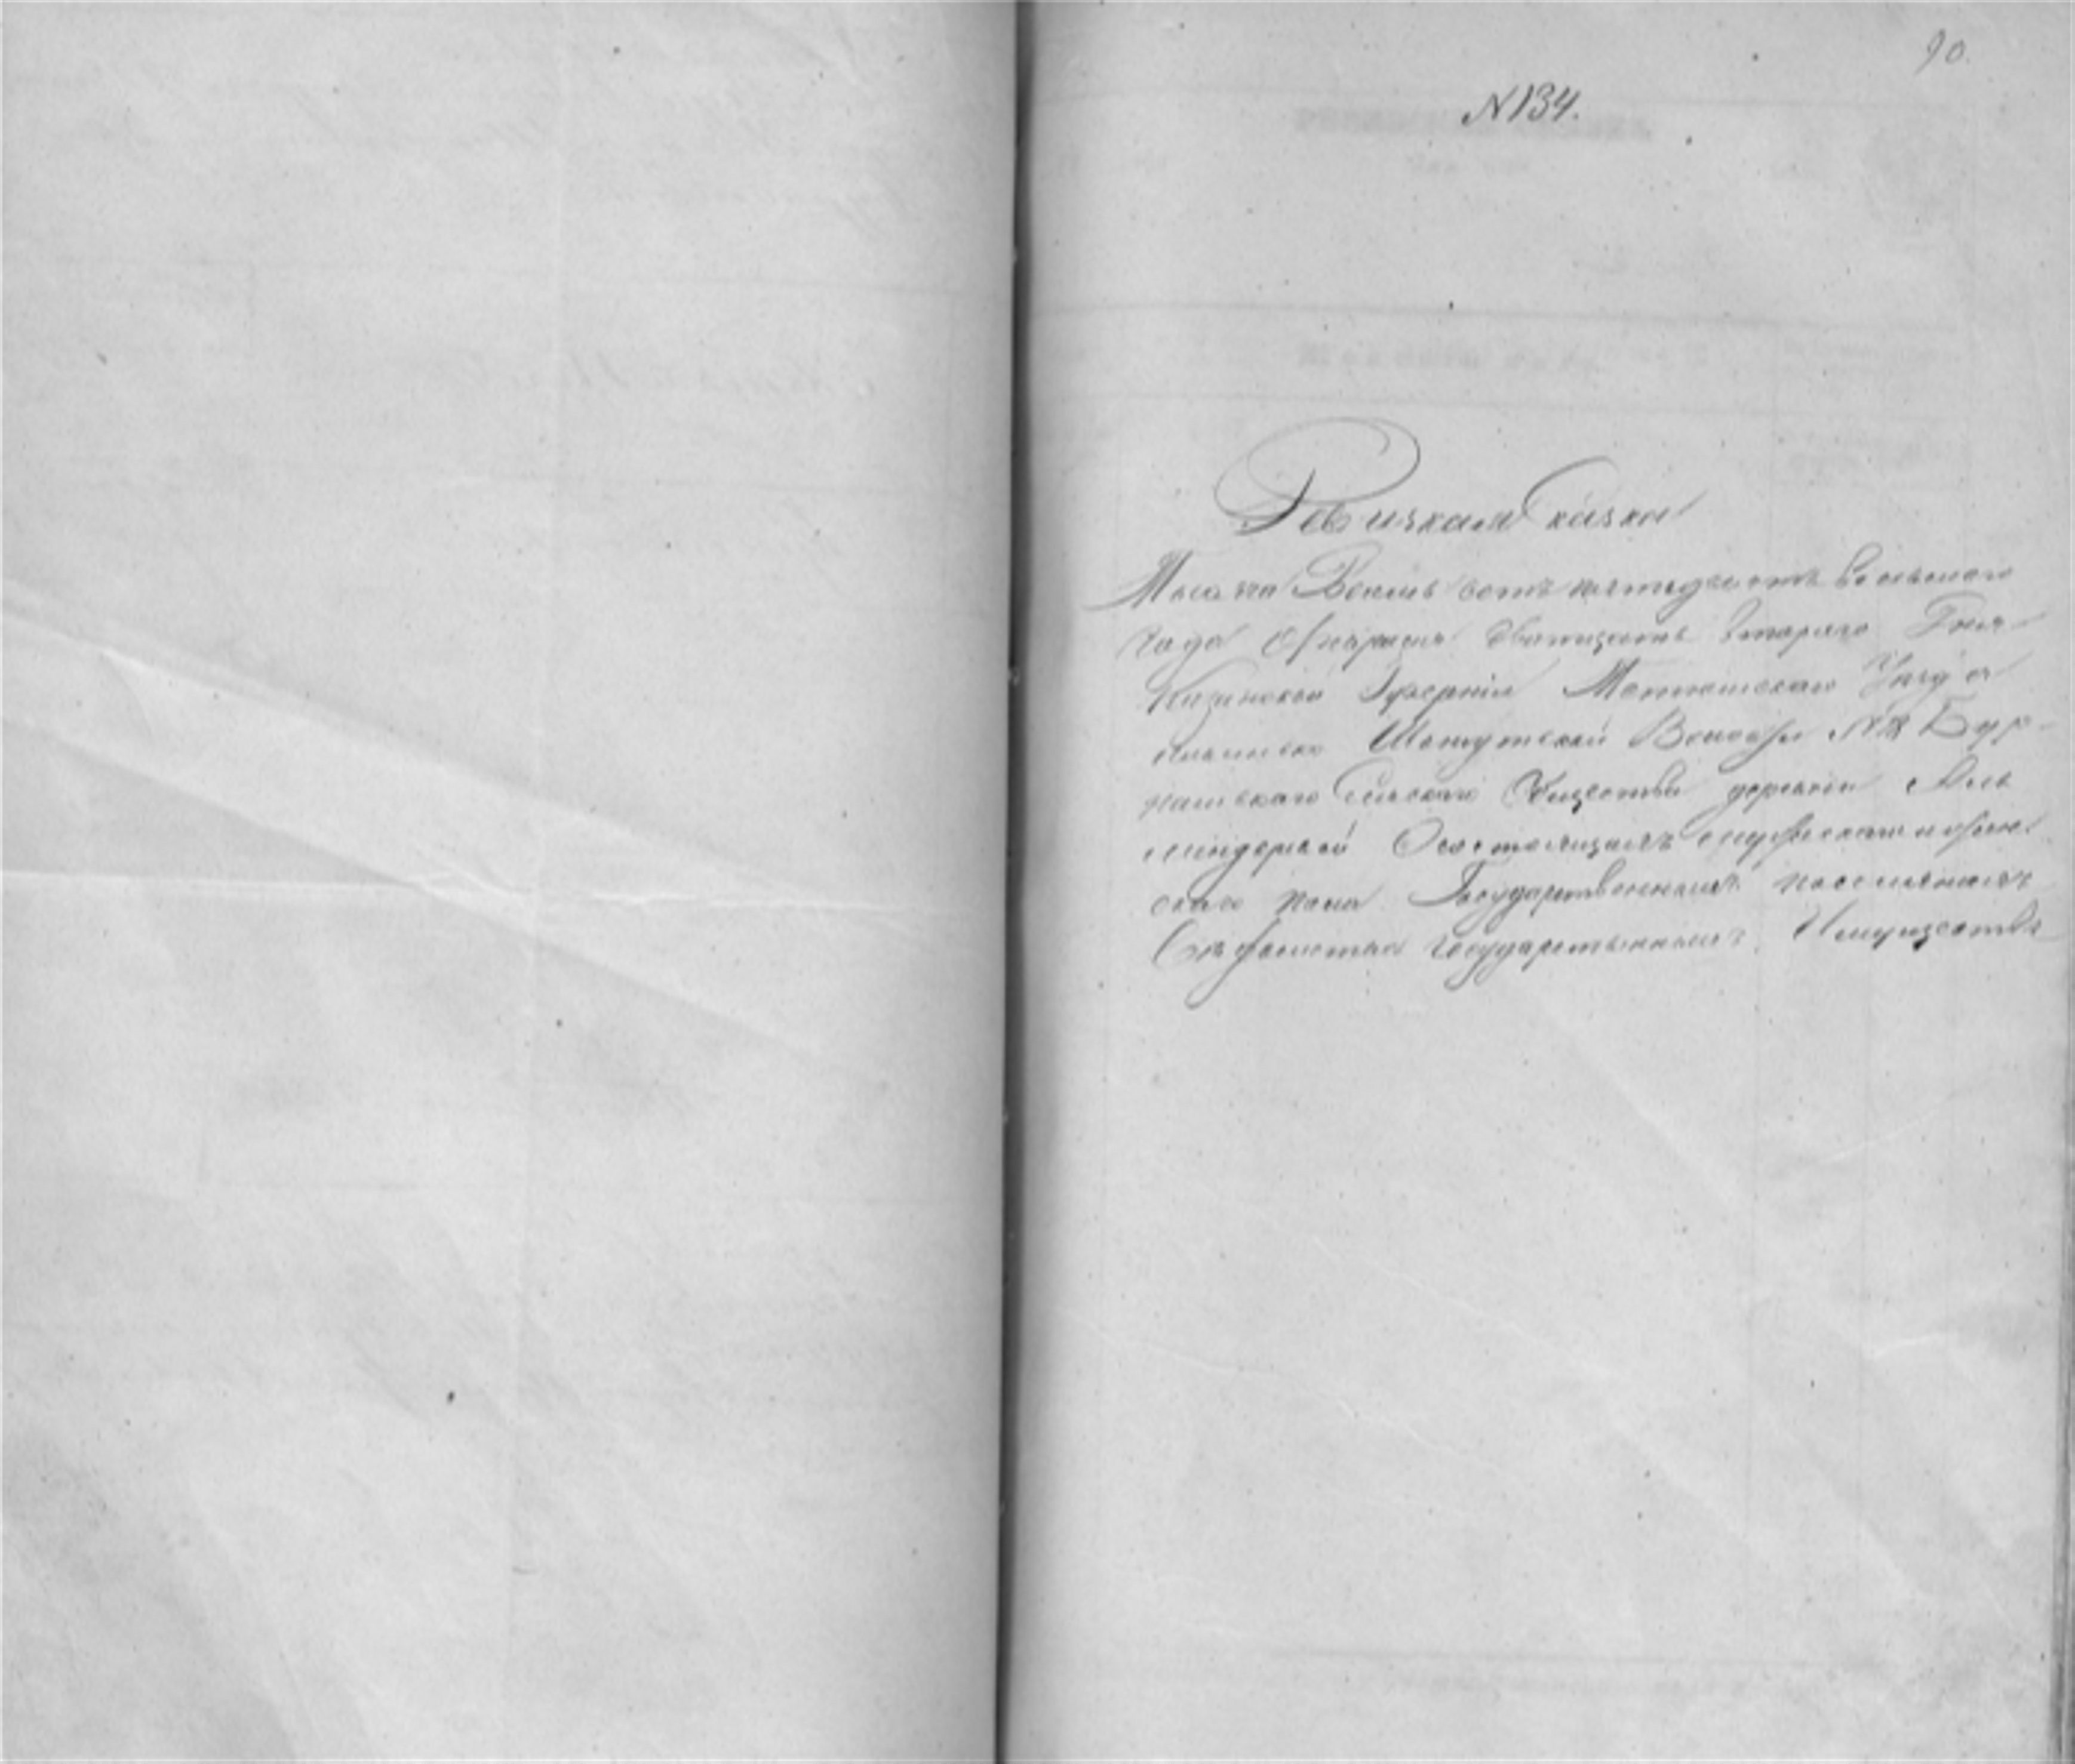 90.
N 134.
Ревизкая Сказка
Тысяча Восемь сотъ пятьдесятъ восьмаго
Года Апреля двадцать втораго Дня
Казанской Губерніи Мамадышскаго Уезда
Шемуртской Волости Бур-
нашевскаго Сельскаго Общества деревни
О состоящихъ мужескаго и жен
скаго пола Государственныхъ поселянахъ
Ведомства Государственныхъ Имуществъ